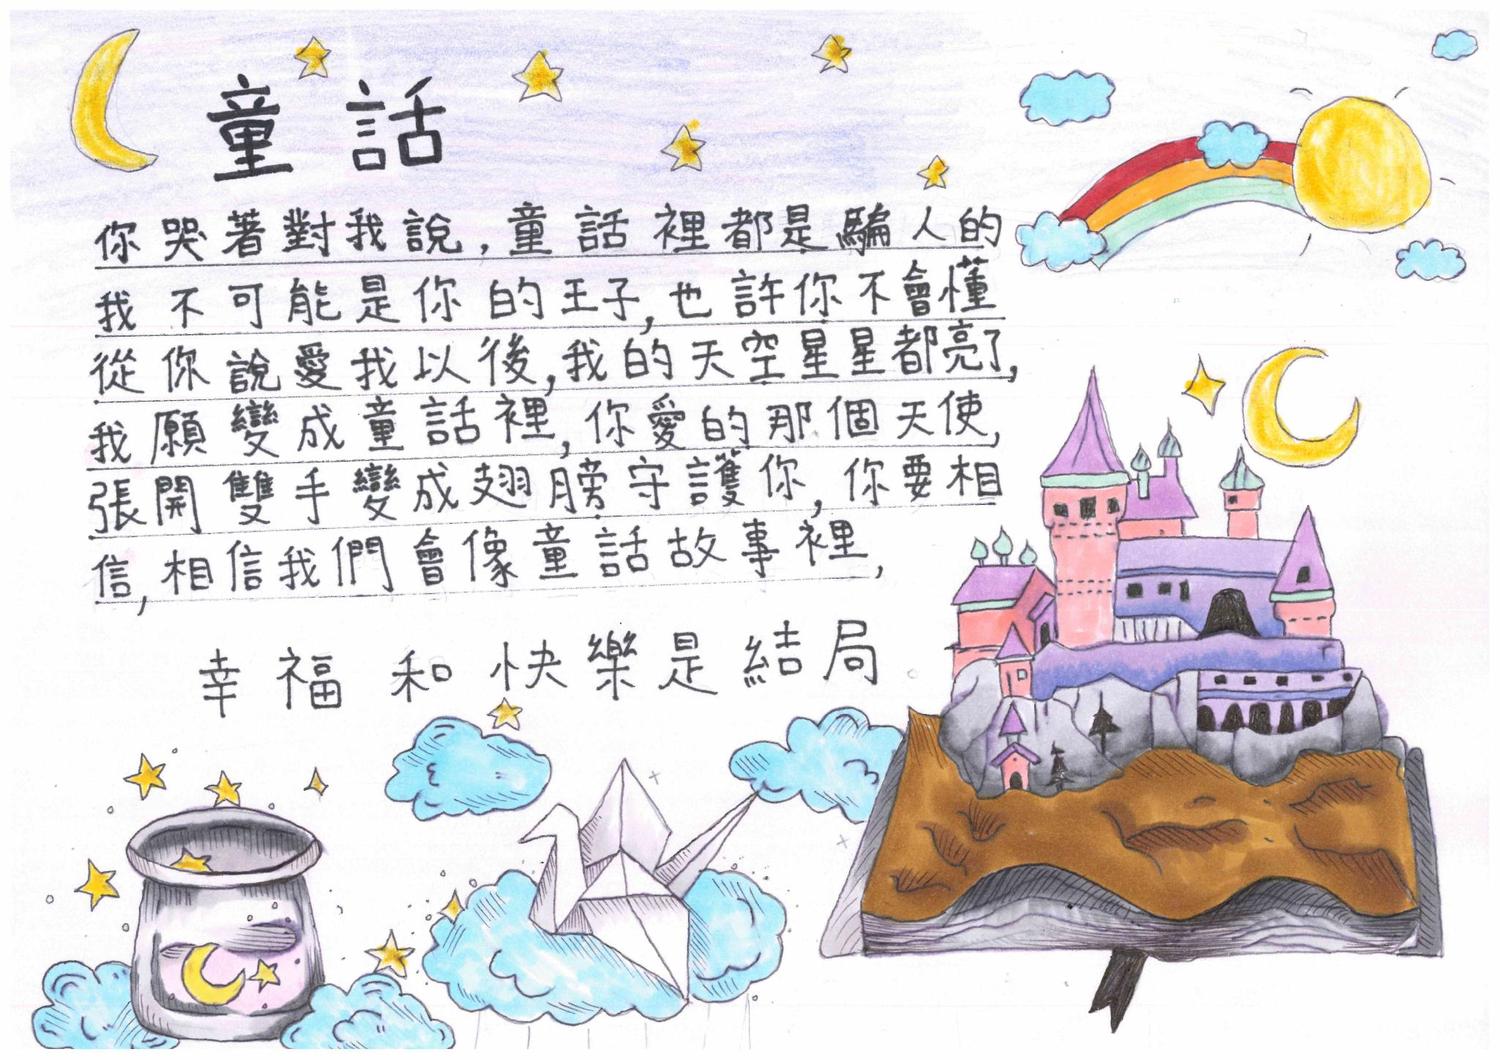 童話
你哭著對我說,童話裡都是騙人的
我不可能是你的王子,也許你不會懂
從你說愛我以後,我的天空星星都亮了,
我願變成童話裡,你愛的那個天使,
張開雙手變成翅膀守護你,你要相
信,相信我們會像童話故事裡,
幸福和快樂是結局